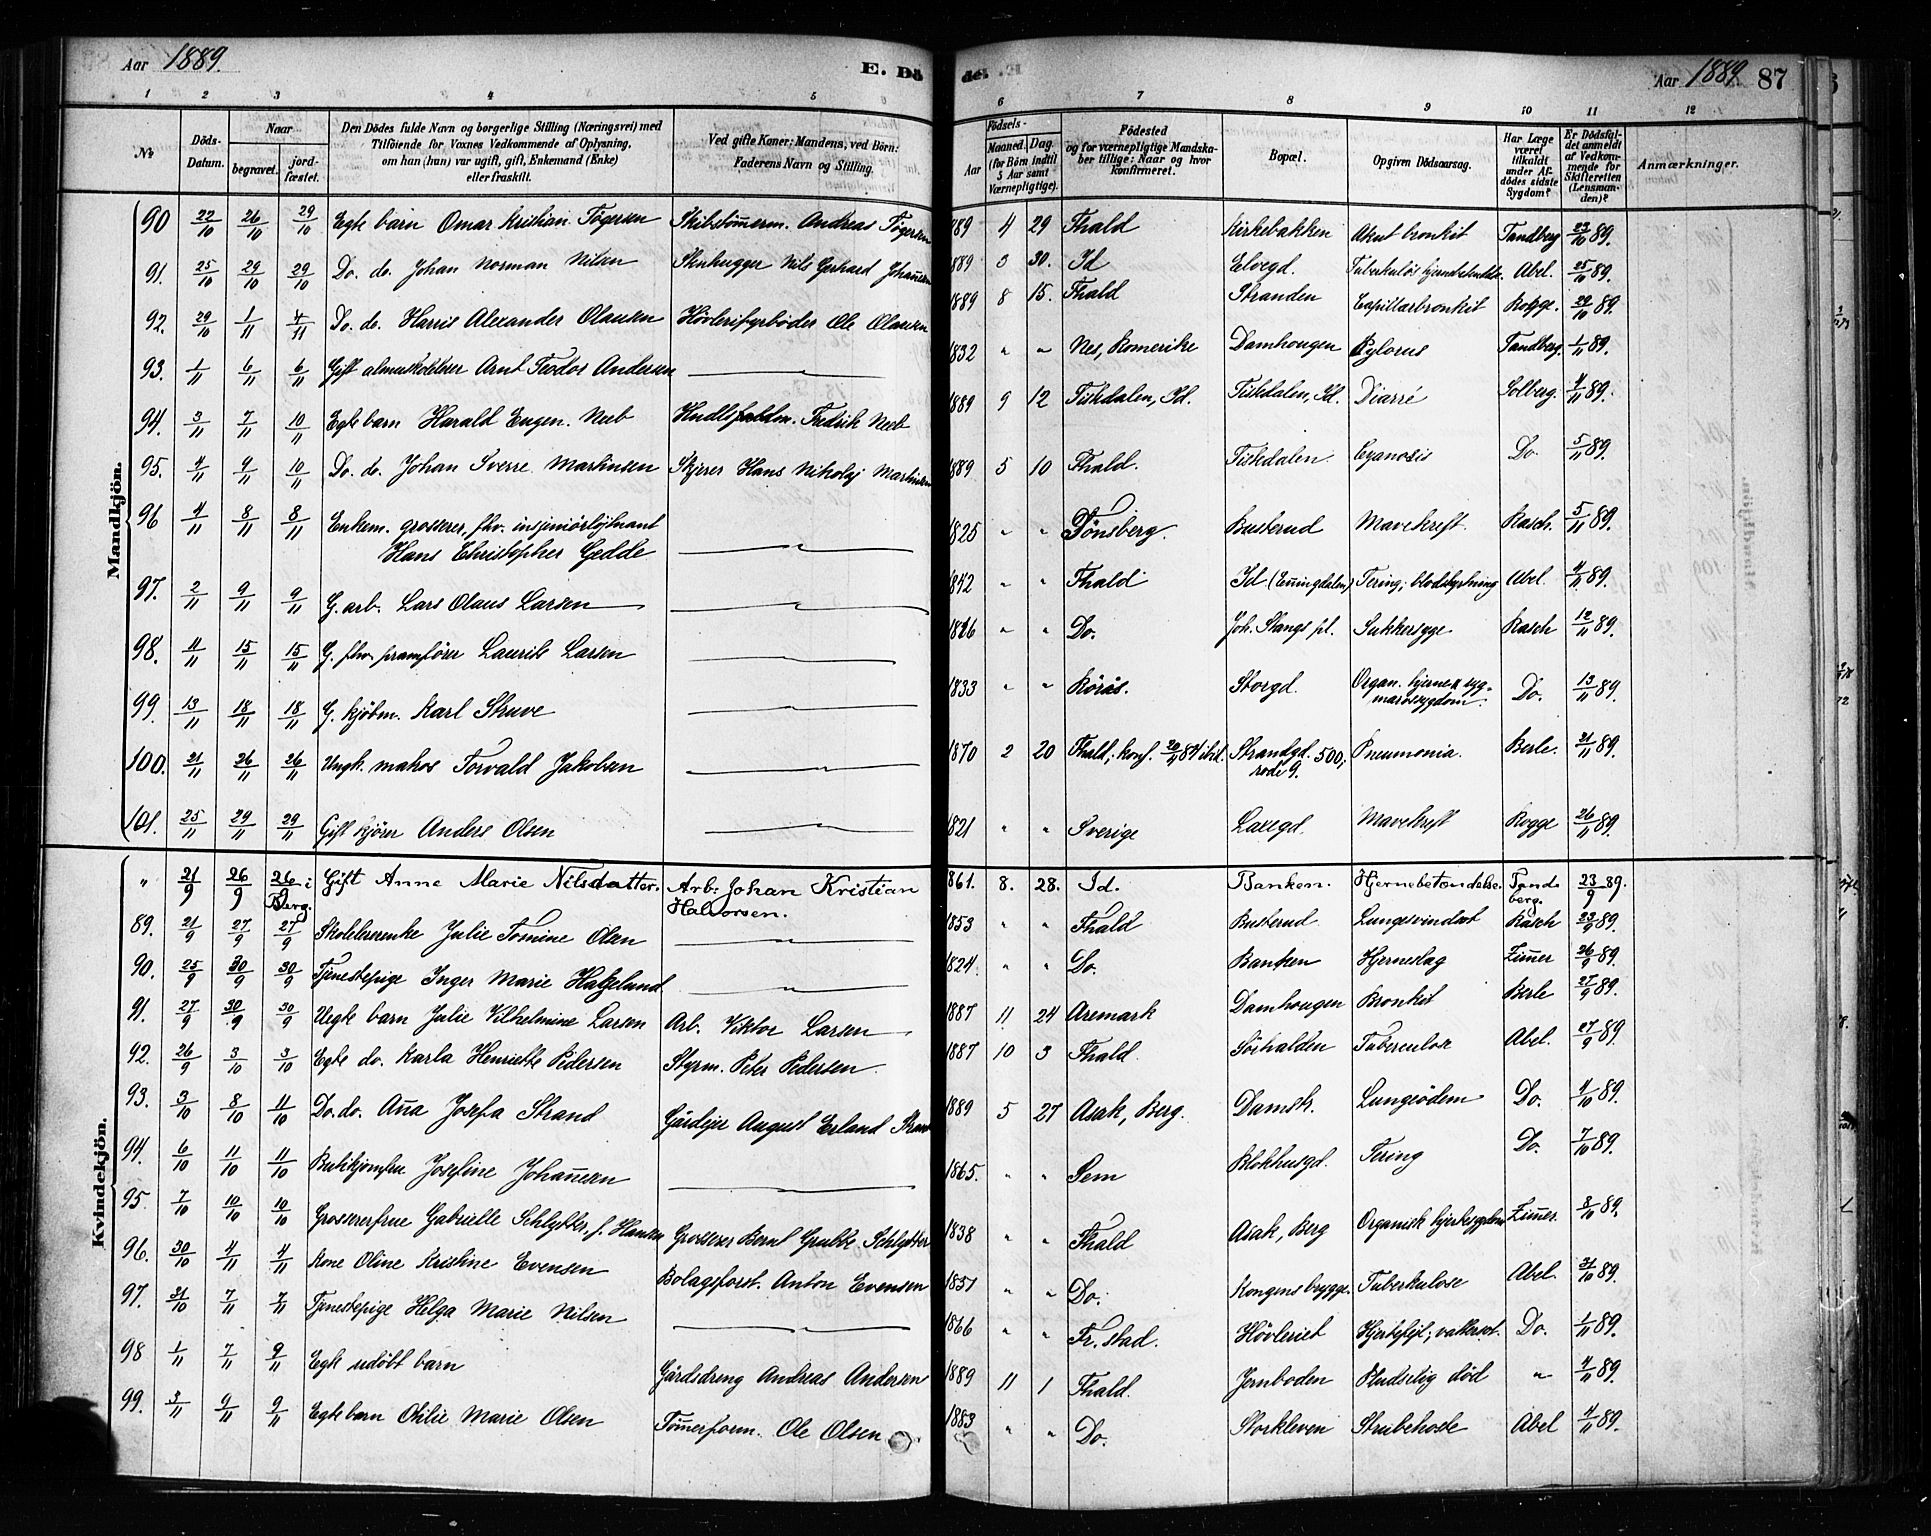 Aar 1889. E. Dö
1 2 3 4 5
№ Döds-Datum. Naar begravet. jordfæstet. Den Dödes fulde Navn og borgerlige Stilling (Næringsvei) med Tilföiende for Voxnes Vedkommende af Oplysning, om han (hun) var ugift, gift, Enkemand (Enke) eller fraskilt. Ved gifte Koner: Mandens, ved Börn: Faderens Navn og Stilling.
Mandkjön.
90 22/10 26/10 29/10 Egte barn Omar Kristian Tögersen Skibstömerm. Andreas Tögersen
91. 25/10 29/10 29/10 Do. do. Johan Norman Nilsen Stenhugger Nils Gerhard Johansen
92. 29/10 1/11 4/11 Do. do. Harris Alexander Olausen Hövlerifyrböder Ole Olausen
93. 1/11 6/11 6/11 Gift almueskolelærer Arnt Teodor Andersen
94. 3/11 7/11 10/11 Egte barn Harald Eugen Neeb Fredrik Neeb
95. 4/11 9/11 10/11 Do. do. Johan Sverre Martinsen Skjerer Hans Nikolaj Martinsen
96 4/11 8/11 8/11 Enkem. grosserer, fhv. insjeniörlöjtnant
Hans Christopher Gedde
97. 2/11 9/11 9/11 G. arb. Lars Olaus Larsen
98. 11/11 15/11 15/11 G. fhv. pramförer Laurits Larsen
99. 13/11 18/11 18/11 G. kjöbm. Karl Struve
100. 21/11 26/11 26/11 Ungk. matros Torvald Jakobsen
101. 25/11 29/11 29/11 Gift kjörer Anders Olsen
Kvindekjön.
" 21/9 26/9 26/9 i Berg. Gift Anne Marie Nilsdatter. Arb: Johan Kristian Halvorsen.
89. 21/9 27/9 27/9 Skolelærerenke Julie Tomine Olsen
90. 25/9 30/9 30/9 Tjenestepige Inger Marie Høgelund
91. 27/9 30/9 30/9 Uegte barn Julie Vilhelmine Larsen Arb. Viktor Larsen
92. 26/9 3/10 3/10 Egte do. Karla Henriette Pedersen Styrm. Peter Pedersen
93. 3/10 8/10 11/10 Do. do. Anna Josefa Strand Gårdejer August Erland Strand
94. 6/10 11/10 11/10 Butikjomfru Josefine Johannesen
95. 7/10 10/10 10/10 Grossererfrue Gabrielle Schlytter, f. Hansen Grosserer Bernt Grubbe Schlytter
96. 30/10 4/11 4/11 Kone Oline Kristine Evensen Bolagsforst. Anton Evensen
97. 31/10 7/11 7/11 Tjenestepige Helga Marie Nilsen
98 1/11 7/11 9/11 Egte udöbt barn Gårdsdreng Andreas Andersen
99. 3/11 9/11 9/11 Egte barn Otilie Marie Olsen Tömerform. Ole Olsen
de. Aar 1889 87
6 7 8 9 10 11 12
Födsels- Aar Maaned Dag. (for Börn indtil 5 Aar samt Værnepligtige). Födested og for værnepligtige Mandskaber tillige: Naar og hvor konfirmeret. Bopæl. Opgiven Dödsaarsag. Har Læge været tilkaldt under Afdödes sidste Sygdom? Er Dödsfaldet anmeldt af Vedkommende for Skifteretten (Lensmanden)? Anmærkninger.
1889 4 29 Fhald Kirkebakken Akut bronkit Tandberg 23/10 89.
1889 3 30. Id Elvegd. Tuberkulös Abel. 25/10 89.
1889 8 15. Fhald Stranden Capillærbronkit Rogge. 29/10 89.
1832 " " Nes, Romerike Damhougen Pylorus Tandberg. 1/11 89.
1889 9 12 Tistedalen, Id. Tistedalen, Id. Diarré Solberg. 4/11 89.
1889 5 10 Fhald. Tistedalen. Cyanosis Do. 5/11 89.
1825 " " Tönsberg. Busterud Mavekreft. Rasch. 5/11 89.
1842 " " Fhald Id (Enningdalen) Tering; blodstyrtning Abel. 4/11 89.
1826 " " Do. Joh. Stangs pl. Sukkersyge Rasch 12/11 89.
1833 " " Rörås. Storgd. Organ. hjerne & rygmarvssygdom. Do. 13/11 89.
1870 2 20 Fhald; konf. 20/4 84 ibid. Strandgd. 500, rode 9. Pneumonia. Berle. 21/11 89.
1821 " " Sverige Laxegd. Mavekreft Rogge 26/11 89.
1861. 8. 28. Id. Banken. Hjernebetændelse. Tandberg. 23/9 89.
1853 " " Fhald Busterud Lungesvindsot Rasch 23/9 89.
1824. " " Do. Banken Hjerneslag Zimmer 26/9 89.
1887 11 24 Aremark Damhougen Bronkit Berle 27/9 89.
1887 10 3 Fhald. Sörhalden Tuberculose Abel. 27/9 89.
1889 5 27 Asak, Berg. Damstr. Lungeödem Do. 4/10 89.
1865. " " Sem Blokhusgd. Tering Do. 7/10 89.
1838 " " Fhald Asak, Berg Organisk hjertesygdom Zimmer. 8/10 89.
1851 " " Do. Kongens brygge. Tuberkulose Abel. 31/10 89.
1866 " " Fr. stad. Hövleriet Hjertefejl; vattersot. Do. 1/11 89.
1889 11 1 Fhald. Jernboden Pludselig död " 4/11 89.
1883 " " Do. Storkleven Strubehoste Abel 4/11 89.